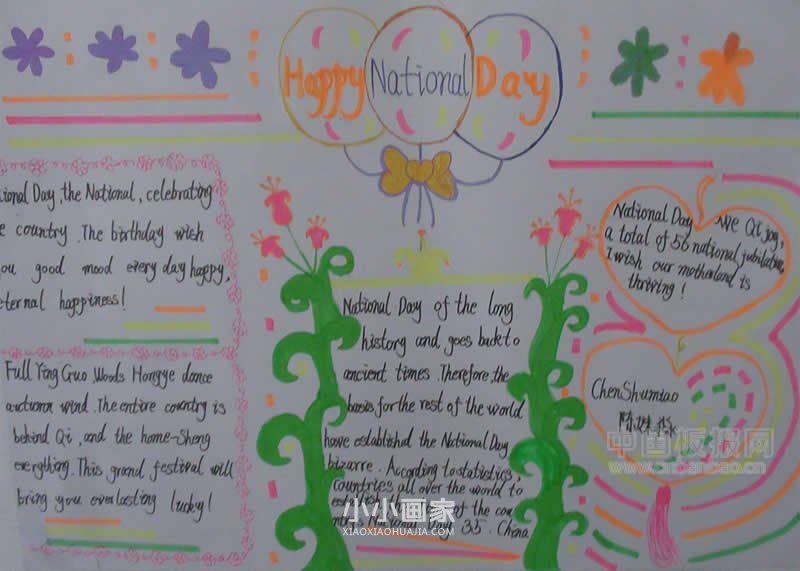 Happy National Day
ional Day, the National, celebrating
e country. The birthday wish
ou good mood every day happy,
eternal happiness!
Full Ying Guo, Woods Hongye dance
autumn wind. The entire country is
behind Qi, and the home-Sheng
everything. This grand festival will
bring you everlasting lucky!
National Day of the long
history and goes back to
ancient times. Therefore, the
basis, for the rest of the world
have established the National Day
bizarre. According to statistics,
countries all over the world to
at the cou
National Day 35. China
National Day
We Qi joy,
a total of 56 national jubilation,
I wish our motherland is
thriving!
ChenShumiao
陈
中国板报网
www.cnbanbao.cn
小小画家
XIAOXIAOHUAJIA.COM